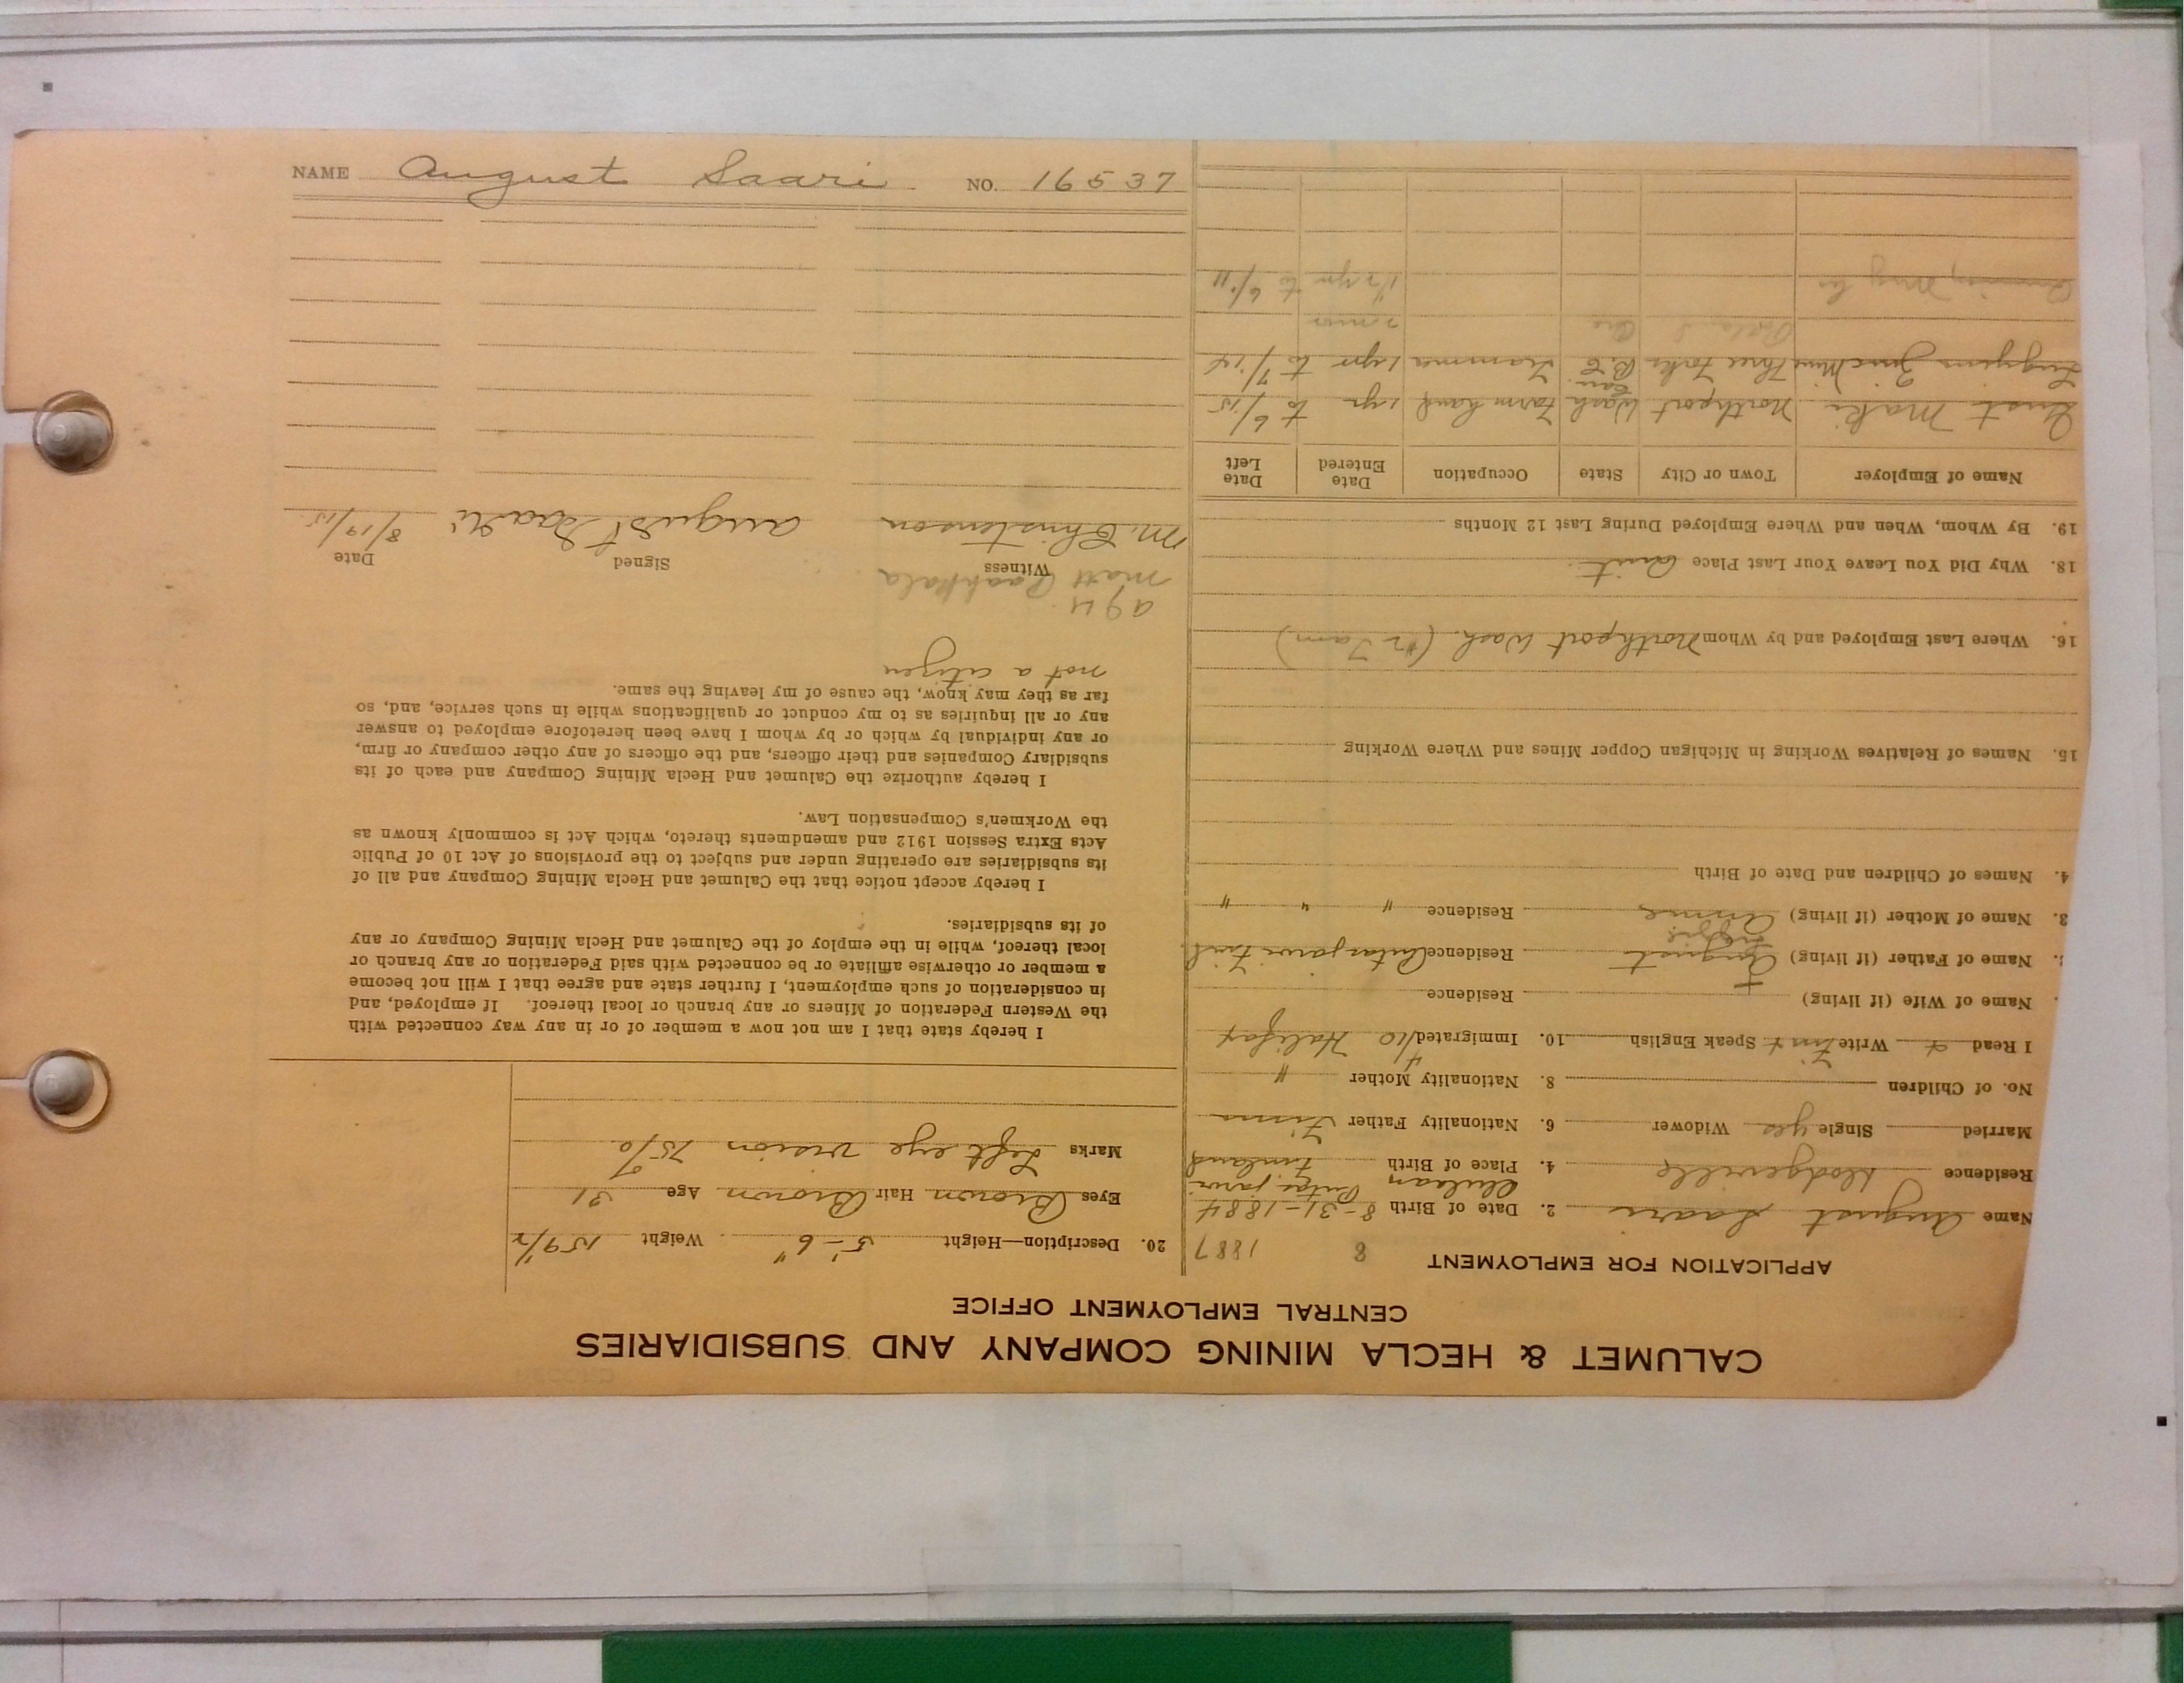 NAME August Saari NO. 16537
CALUMET & HECLA MINING COMPANY AND SUBSIDIARIES
CENTRAL EMPLOYMENT OFFICE
APPLICATION FOR EMPLOYMENT
8 1887
Name August Saari 2. Date of Birth 8-31-1884
Residence Dodgeville 4. Place of Birth Finland
Married Single yes Widower 6. Nationality Father Finn
No. of Children 8. Nationality Mother "
I Read Write Finn Speak English 10. Immigrated 4/10 Halifax
Name of Wife (if living) Residence
Name of Father (if living) August Residence
3. Name of Mother (if living) Residence " " "
4. Names of Children and Date of Birth
15. Names of Relatives Working in Michigan Copper Mines and Where Working
16. Where Last Employed and by Whom Northport Wash.
18. Why Did You Leave Your Last Place Quit
19. By Whom, When and Where Employed During Last 12 Months
Name of Employer Town or City State Occupation Date Entered Date Left
Gust Maki Northport Wash Farm hand 1 yr to 6/15
Zinc Mine Three Forks B.C. Trammer 1 yr to 7/14
2 mos
1 1/2 yr to 6/11
20. Description—Height 5'-6" Weight 159 1/2
Eyes Brown Hair Brown Age 31
Marks Left eye vision 75%
I hereby state that I am not now a member of or in any way connected with
the Western Federation of Miners or any branch or local thereof. If employed, and
in consideration of such employment, I further state and agree that I will not become
a member or otherwise affiliate or be connected with said Federation or any branch or
local thereof, while in the employ of the Calumet and Hecla Mining Company or any
of its subsidiaries.
I hereby accept notice that the Calumet and Hecla Mining Company and all of
its subsidiaries are operating under and subject to the provisions of Act 10 of Public
Acts Extra Session 1912 and amendments thereto, which Act is commonly known as
the Workmen's Compensation Law.
I hereby authorize the Calumet and Hecla Mining Company and each of its
subsidiary Companies and their officers, and the officers of any other company or firm,
or any individual by which or by whom I have been heretofore employed to answer
any or all inquiries as to my conduct or qualifications while in such service, and, so
far as they may know, the cause of my leaving the same.
not a citizen
Matt Paakkala
Witness Signed Date
M. Christenson August Saari 8/19/15